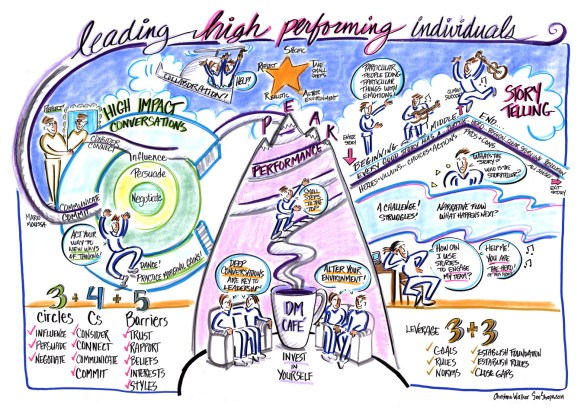 leading high performing individuals
Specific
TAKE
SMALL
STEPS
ALTER
ENVIRONMENT
REALISTIC
COLLABORATION?
HELP!
HIGH IMPACT
CONVERSATIONS
CONSIDER
CONNECT
COMMUNICATE
COMMIT
Influence
Persuade
Negotiate
ACT YOUR
WAY TO
NEW WAYS
OF THINKING!
DANCE!
3+4+5
Circles
INFLUENCE
PERSUADE
NEGOTIATE
Cs
CONSIDER
CONNECT
COMMUNICATE
COMMIT
Barriers
TRUST
RAPPORT
BELIEFS
INTERESTS
STYLES
PEAK
PERFORMANCE
SMALL
STEPS
TO THE
TOP
DEEP
CONVERSATIONS
ARE KEY TO
LEADERSHIP
ALTER YOUR
ENVIRONMENT!
DM
CAFÉ
INVEST
IN
YOURSELF
PARTICULAR
PEOPLE DOING
PARTICULAR
THINGS WITH
EMOTIONS!
STORY
TELLING
ENTER
STORY
BEGINNING
MIDDLE
END
EVERY GOOD STORY HAS A
HEROES + VILLAINS + CHOICES + ACTIONS + PROS + CONS
EXIT
STORY
WHAT'S THE
STORY?
WHO IS THE
STORYTELLER?
A CHALLENGE!
STRUGGLES!
NARRATIVE FLOW
WHAT HAPPENS NEXT?
HOW CAN
I USE
STORIES
TO ENGAGE
MY TEAM?
HELP ME!
YOU ARE
THE HERO
LEVERAGE 3+3
GOALS
RULES
NORMS
ESTABLISH FOUNDATION
ESTABLISH RULES
CLOSE GAPS